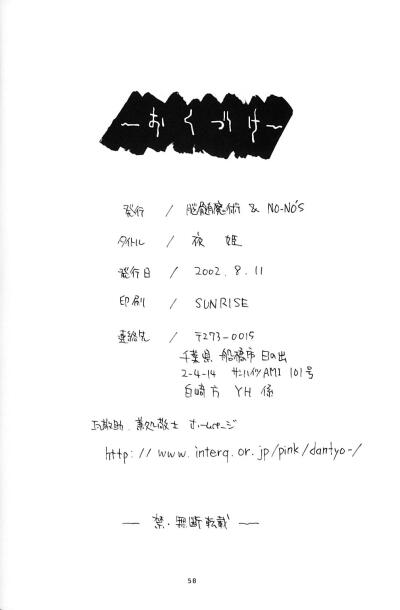 〜おくづけ〜
発行 / 脳髄魔術 & NO-NO'S
タイトル / 夜姫
発行日 / 2002. 8. 11
印刷 / SUNRISE
連絡先 / 〒273-0015
千葉県 船橋市 日の出
2-4-14 サンハイツAMI 101号
白崎方 YH 係
ホームページ
http://www.interq.or.jp/pink/dantyo-/
― 禁・無断転載 ―
58